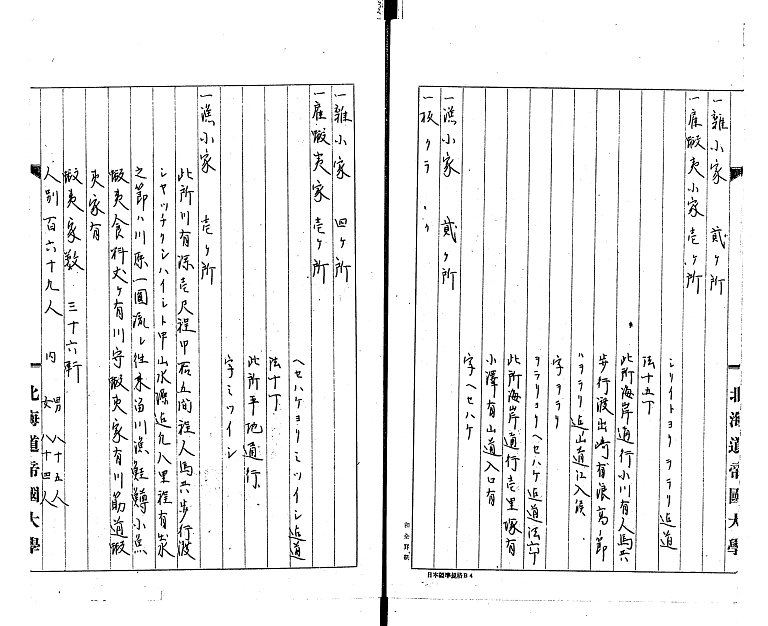 一雑小家 貳ヶ所
一雇蝦夷小家 壱ヶ所
シリイトヨリヲラリ迄道
法十五丁
此所海岸通行小川有人馬共
歩行渡出崎有浪高ノ節
ハヲラリ迄山道江入候
字ヲラリ
ヲラリヨリヘセハケ迄道法六丁
此所海岸通行壱里塚有
小澤有山道入口有
字ヘセハケ
一漁小家 貳ヶ所
一板クラ
北海道帝國大學
日本標準規格B4
一雑小家 四ヶ所
一雇蝦夷家 壱ヶ所
ヘセハケヨリミツイシ迄道
法十丁
此所平地通行
字ミツイシ
一漁小家 壱ヶ所
此所川有深壱尺程巾拾五間程人馬共歩行渡
シヤツチクシハイシト申山水源迄凡八里程有出水
之節ハ川原一圓流レ往来留川漁鮭鱒小魚
蝦夷食料丈ヶ有川守蝦夷家有川筋道蝦
夷家有
蝦夷家数 三十六軒
人別百六十九人 内 男八十五人 女八十四人
北海道帝國大學